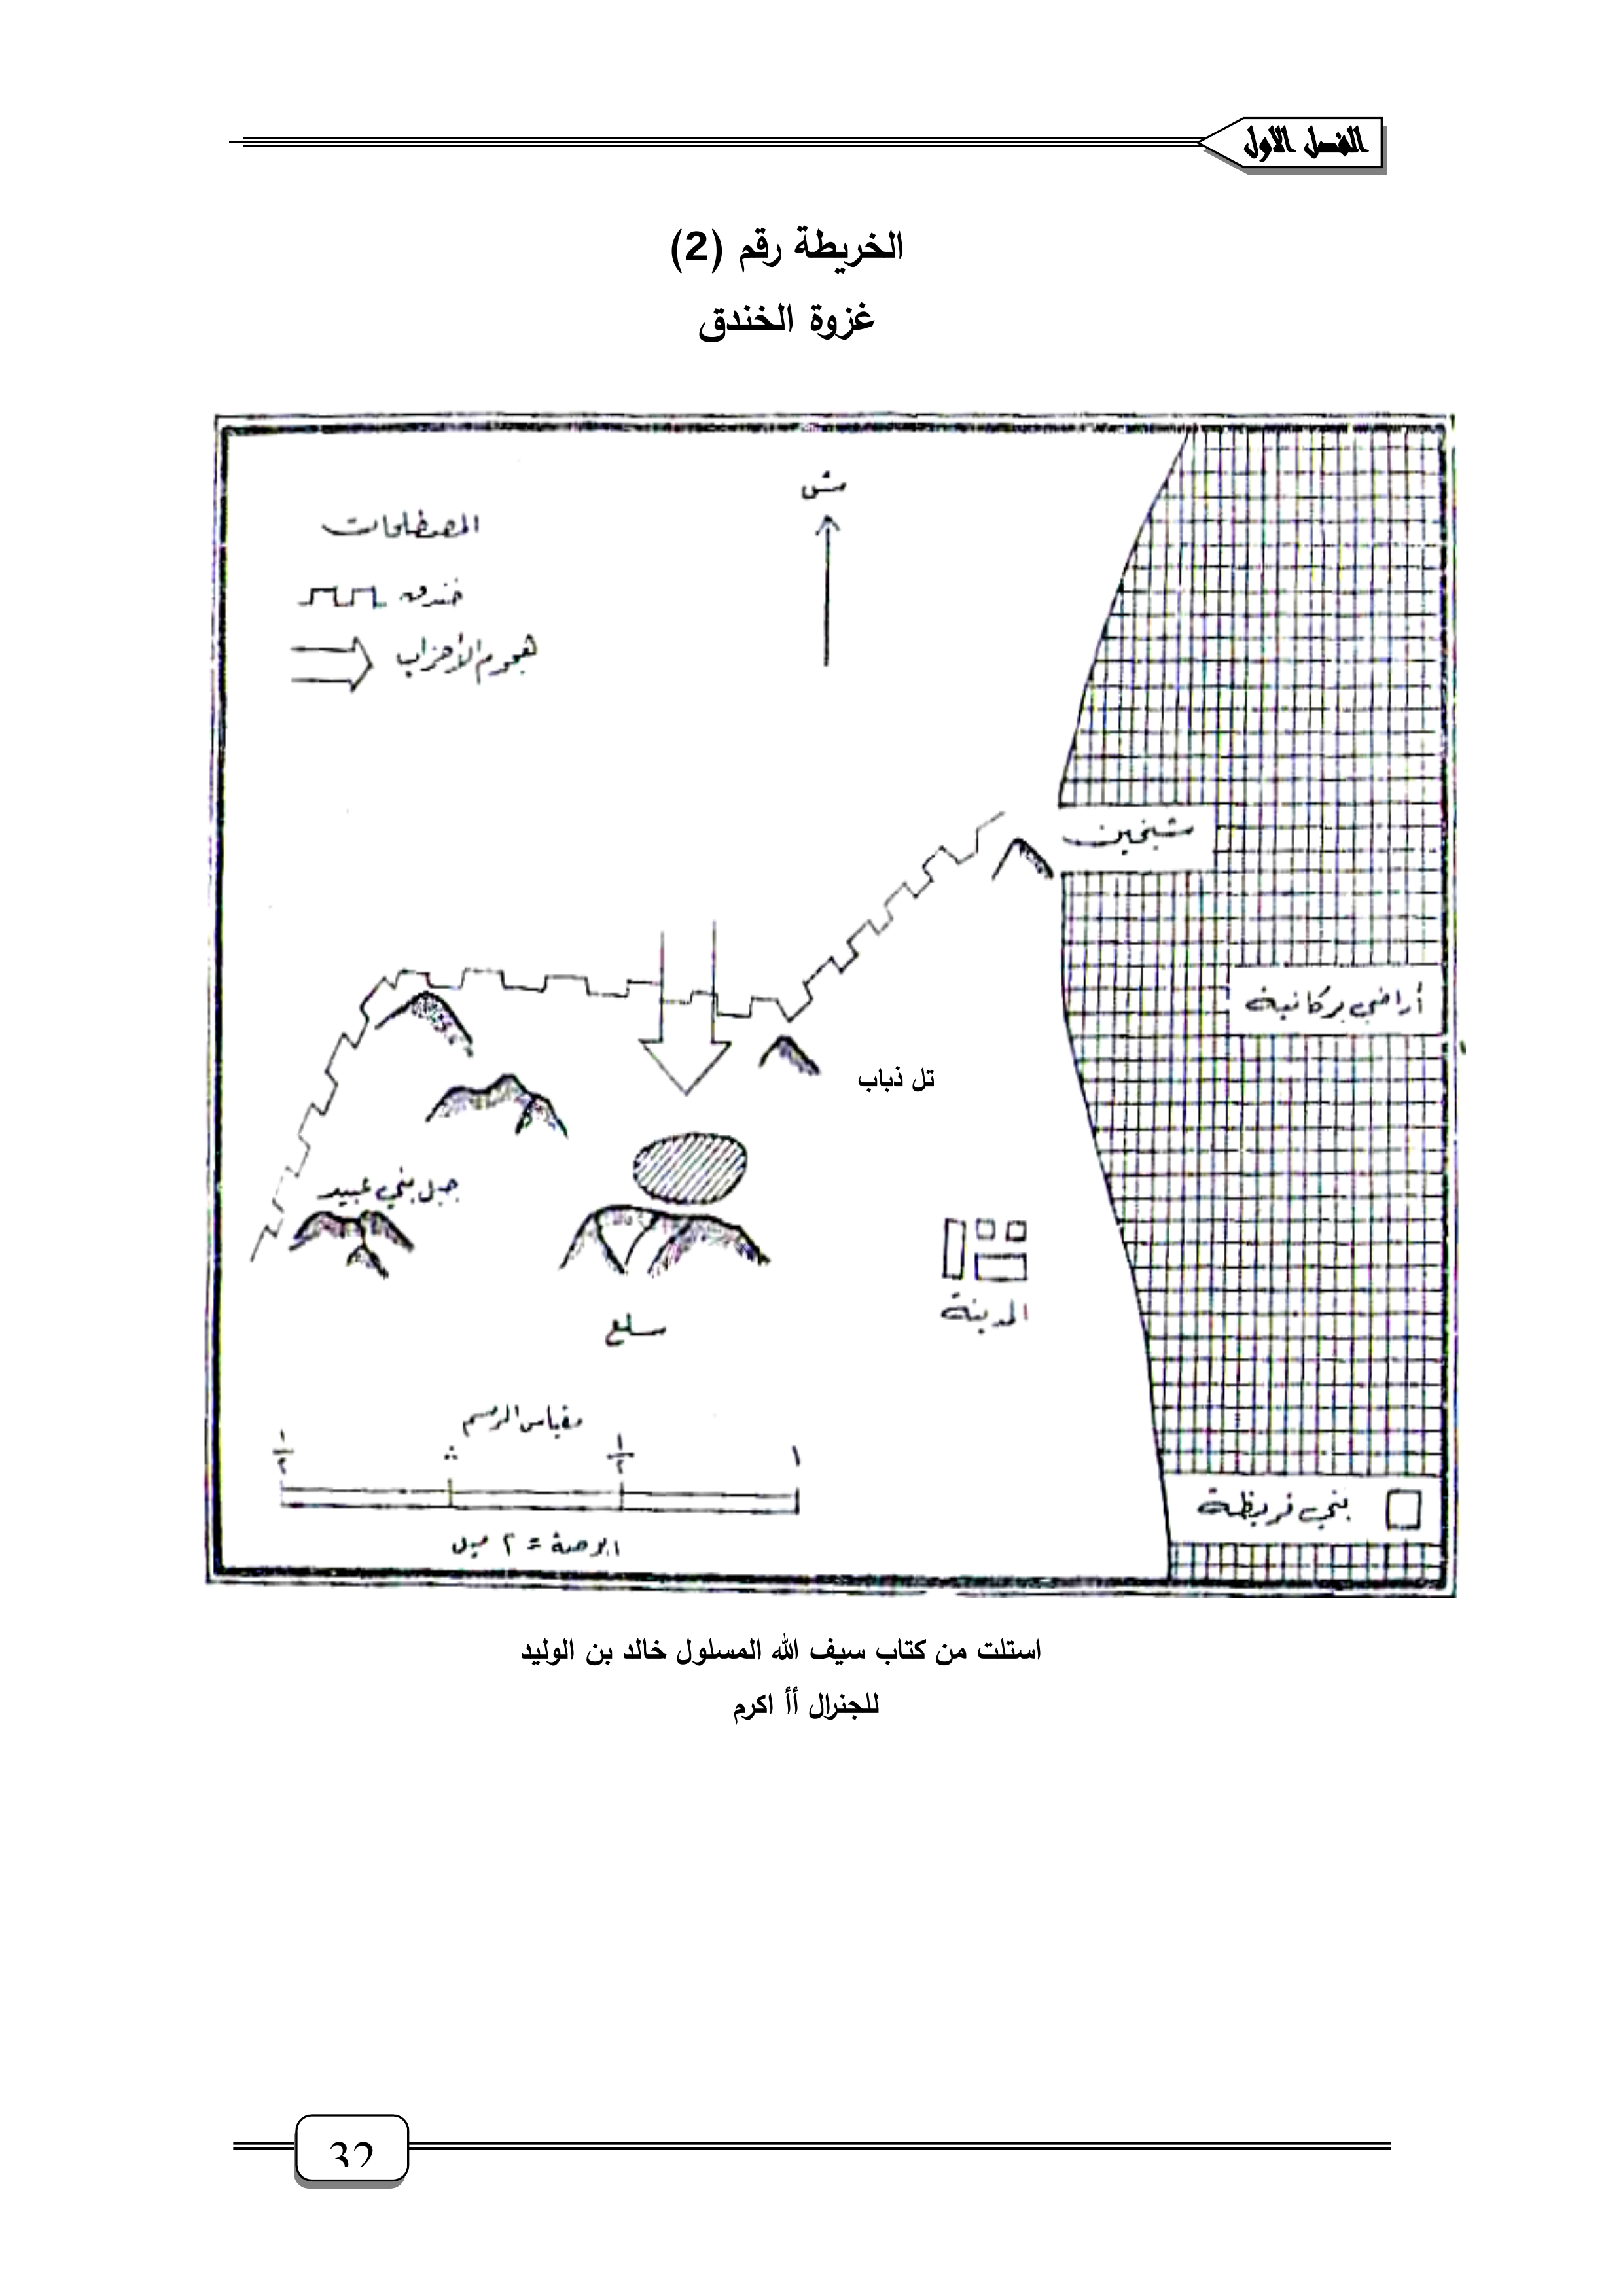 الفصل الاول
الخريطة رقم (2)
غزوة الخندق
ش
المصطلحات
خندق
هجوم الأحزاب
شيخين
أراضي بركانية
تل ذباب
جبل بني عبيد
المدينة
سلع
مقياس الرسم
١/٢ ٠ ١/٢ ١
البوصة = ٢ ميل
بني قريظة
استلت من كتاب سيف الله المسلول خالد بن الوليد
للجنرال أأ اكرم
32